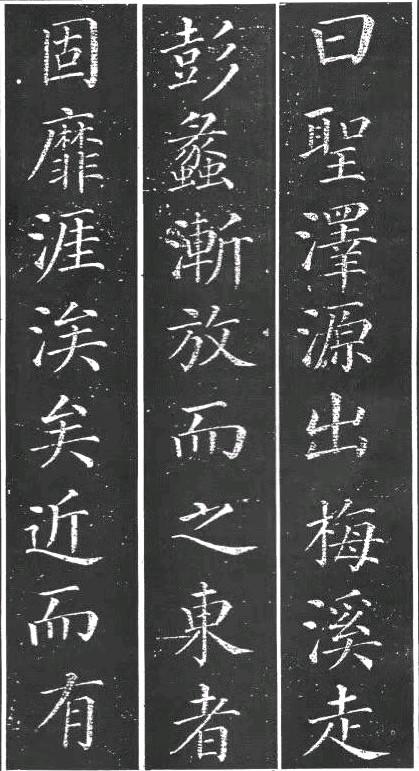 曰聖澤源出梅溪走
彭蠡漸放而之東者
固靡涯涘矣近而有